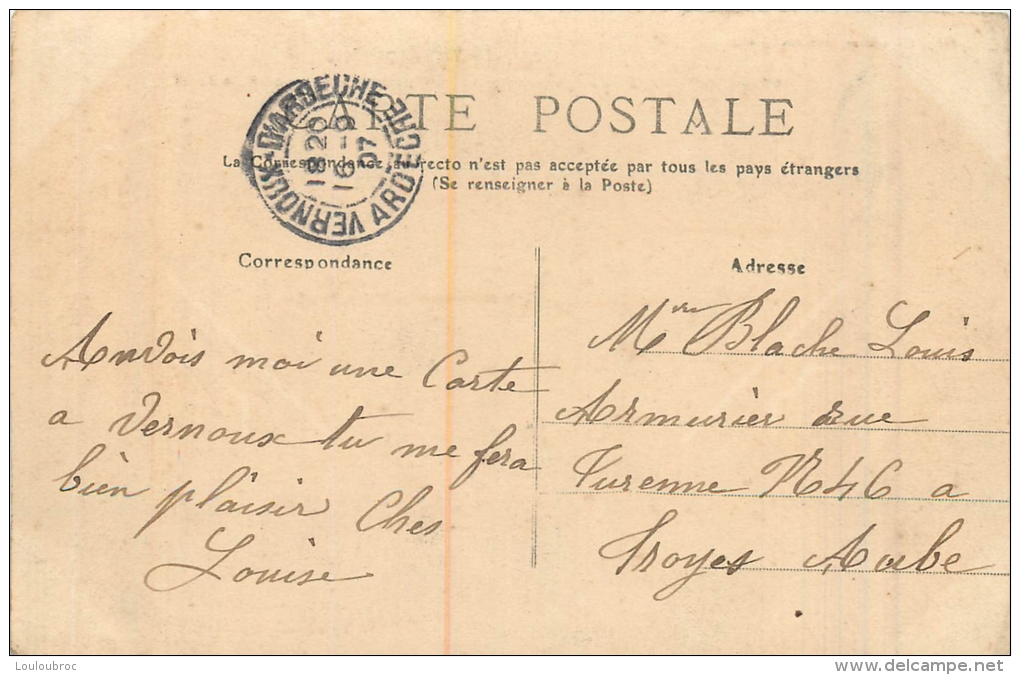 CARTE POSTALE
La Correspondance au recto n'est pas acceptée par tous les pays étrangers
(Se renseigner à la Poste)
VERNOUX-D'ARDECHE ARDECHE
18 20
16 - 9
07
Correspondance
Anvois moi une Carte
a Vernoux tu me fera
bien plaisir Ches
Louise
Adresse
Blache Louis
Armurier rue
Turenne N 46 a
Troyes Aube
Louloubroc
www.delcampe.net